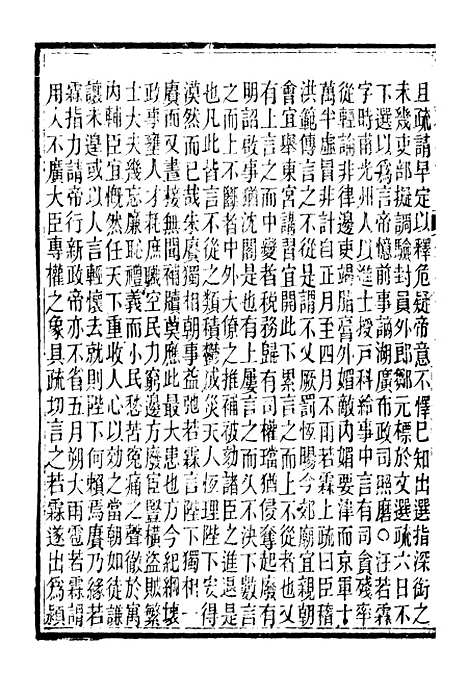 且疏請早定以釋危疑帝意不懌已知出選指深銜之
未幾吏部擬調驗封員外郎鄒元標於文選疏六日不
下選以爲言帝憶前事謫湖廣布政司照磨○汪若霖
字時甫光州人以進士授戶科給事中言有司貪殘率
從輕論非律邊吏竭脂膏外媚敵內媚要津而京軍十
萬半虛冒非計自正月至四月不雨若霖上疏曰臣稽
洪範傳言之不從是謂不乂厥罰恆暘今郊廟宜親朝
會宜舉東宮講習宜開此下累言之而上不從者也又
有上言之而中變者稅務歸有司權璫猶侵奪起廢有
明詔啟事猶沈閣是也有上屢言之而久不決下數言
之而上不斷者中外大僚之推補被劾諸臣之進退是
也凡此皆言不從之類積鬱成災天人恆理陛下安得
漠然而已哉朱賡獨相朝事益弛若霖
賡而又晝接無聞補牘莫應此最大患也方今紀綱壞
政事壅人才耗庶職空民力窮邊方廢宦豎橫盜賊繁
士大夫幾忘廉恥禮義而小民愁苦冤痛之聲徹於寓
內輔臣宜慨然任天下重收人心以效之當朝如徒謙
讓未遑或以人言輕懷去就則陛下何賴焉賡乃緣若
霖指力請帝行新政帝亦不省五月朔大雨雹若霖謂
用人不廣大臣專權之象具疏切言之若霖遂出爲潁